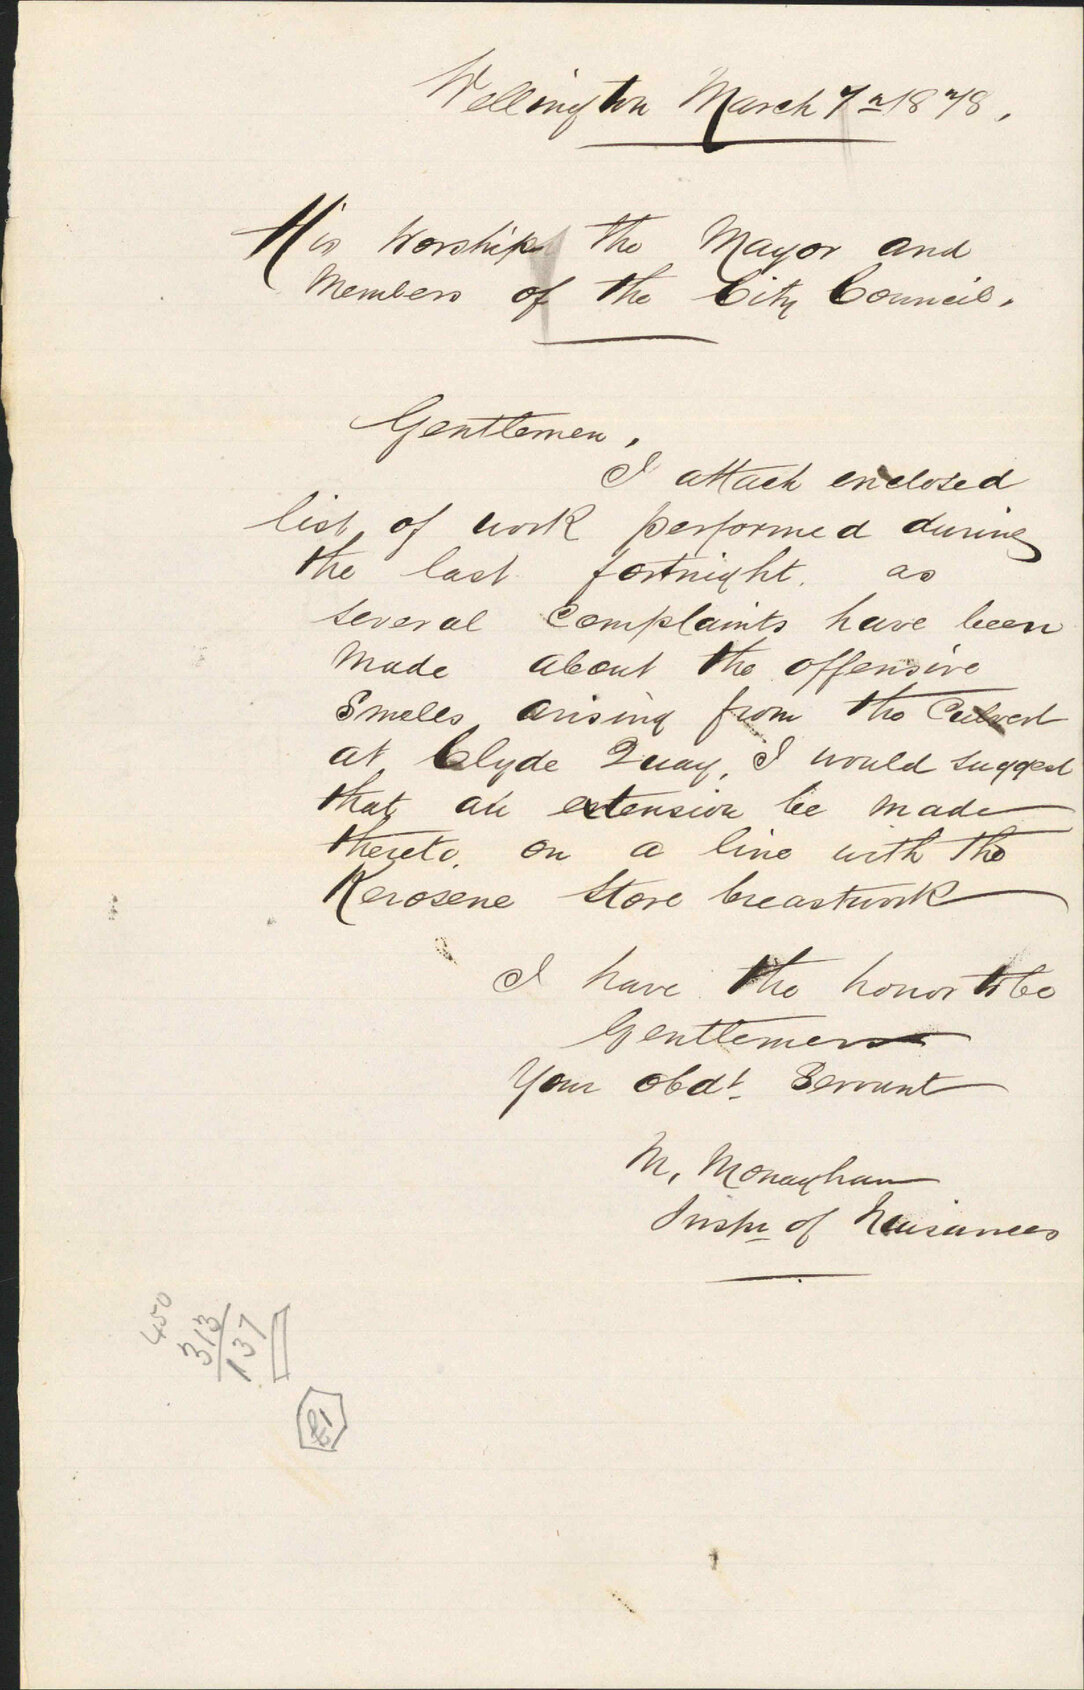 Wellington March 7th 1878.
His Worship the Mayor and
Members of the City Council.
Gentlemen,
I attach enclosed
list of work performed during
the last fortnight. as
several Complaints have been
Made about the offensive
Smells arising from the Culvert
at Clyde Quay, I would suggest
that an extension be made
thereto. on a line with the
Kerosene Store breastwork
I have the honor to be
Gentlemen
Your obdt. Servant
M. Monaghan
Inspr of Nuisances
450
313
137